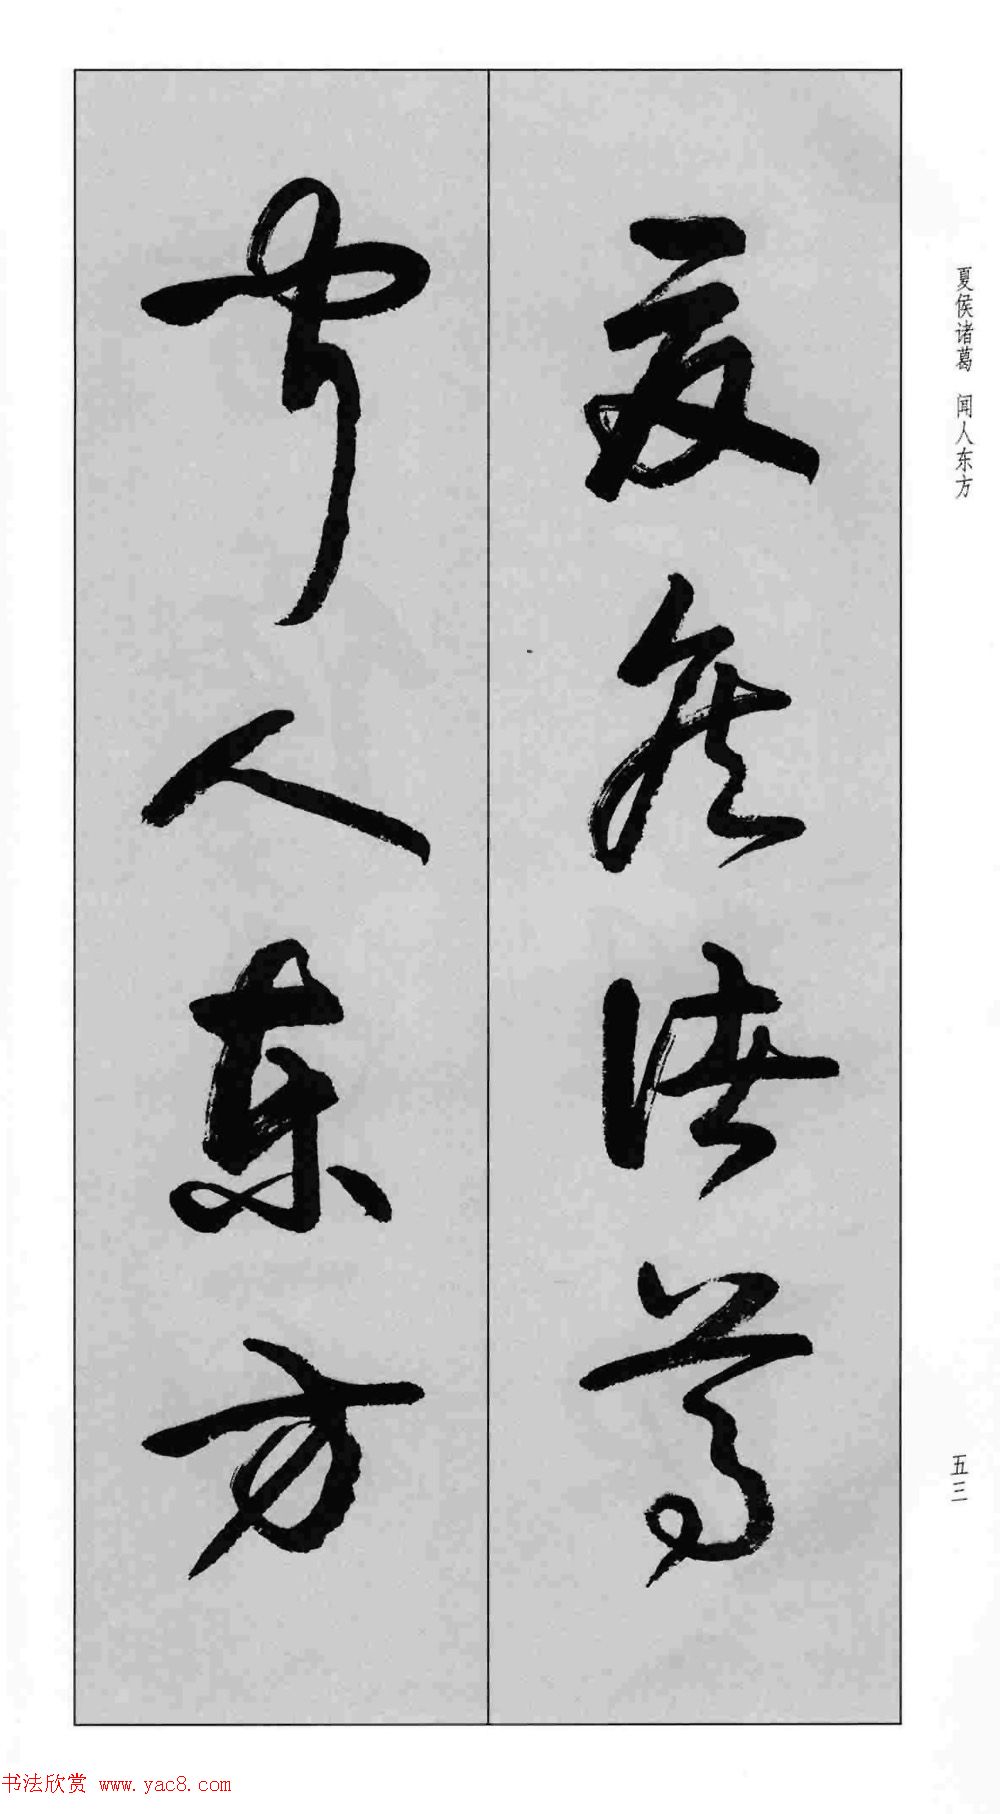 夏侯诸葛
闻人东方
夏侯诸葛 闻人东方
五三
书法欣赏 www.yac8.com